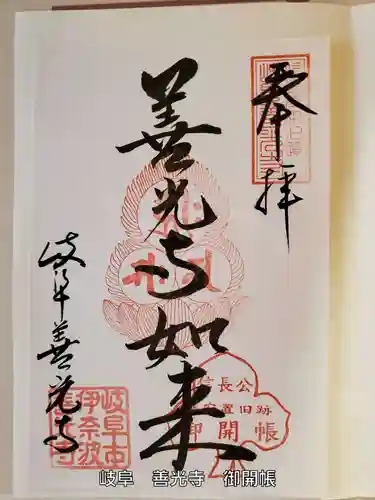 奉拝
善光寺如来
岐阜善光寺
信長公
安置旧跡
御開帳
岐阜市
伊奈波
善光寺
岐阜　善光寺　御開帳